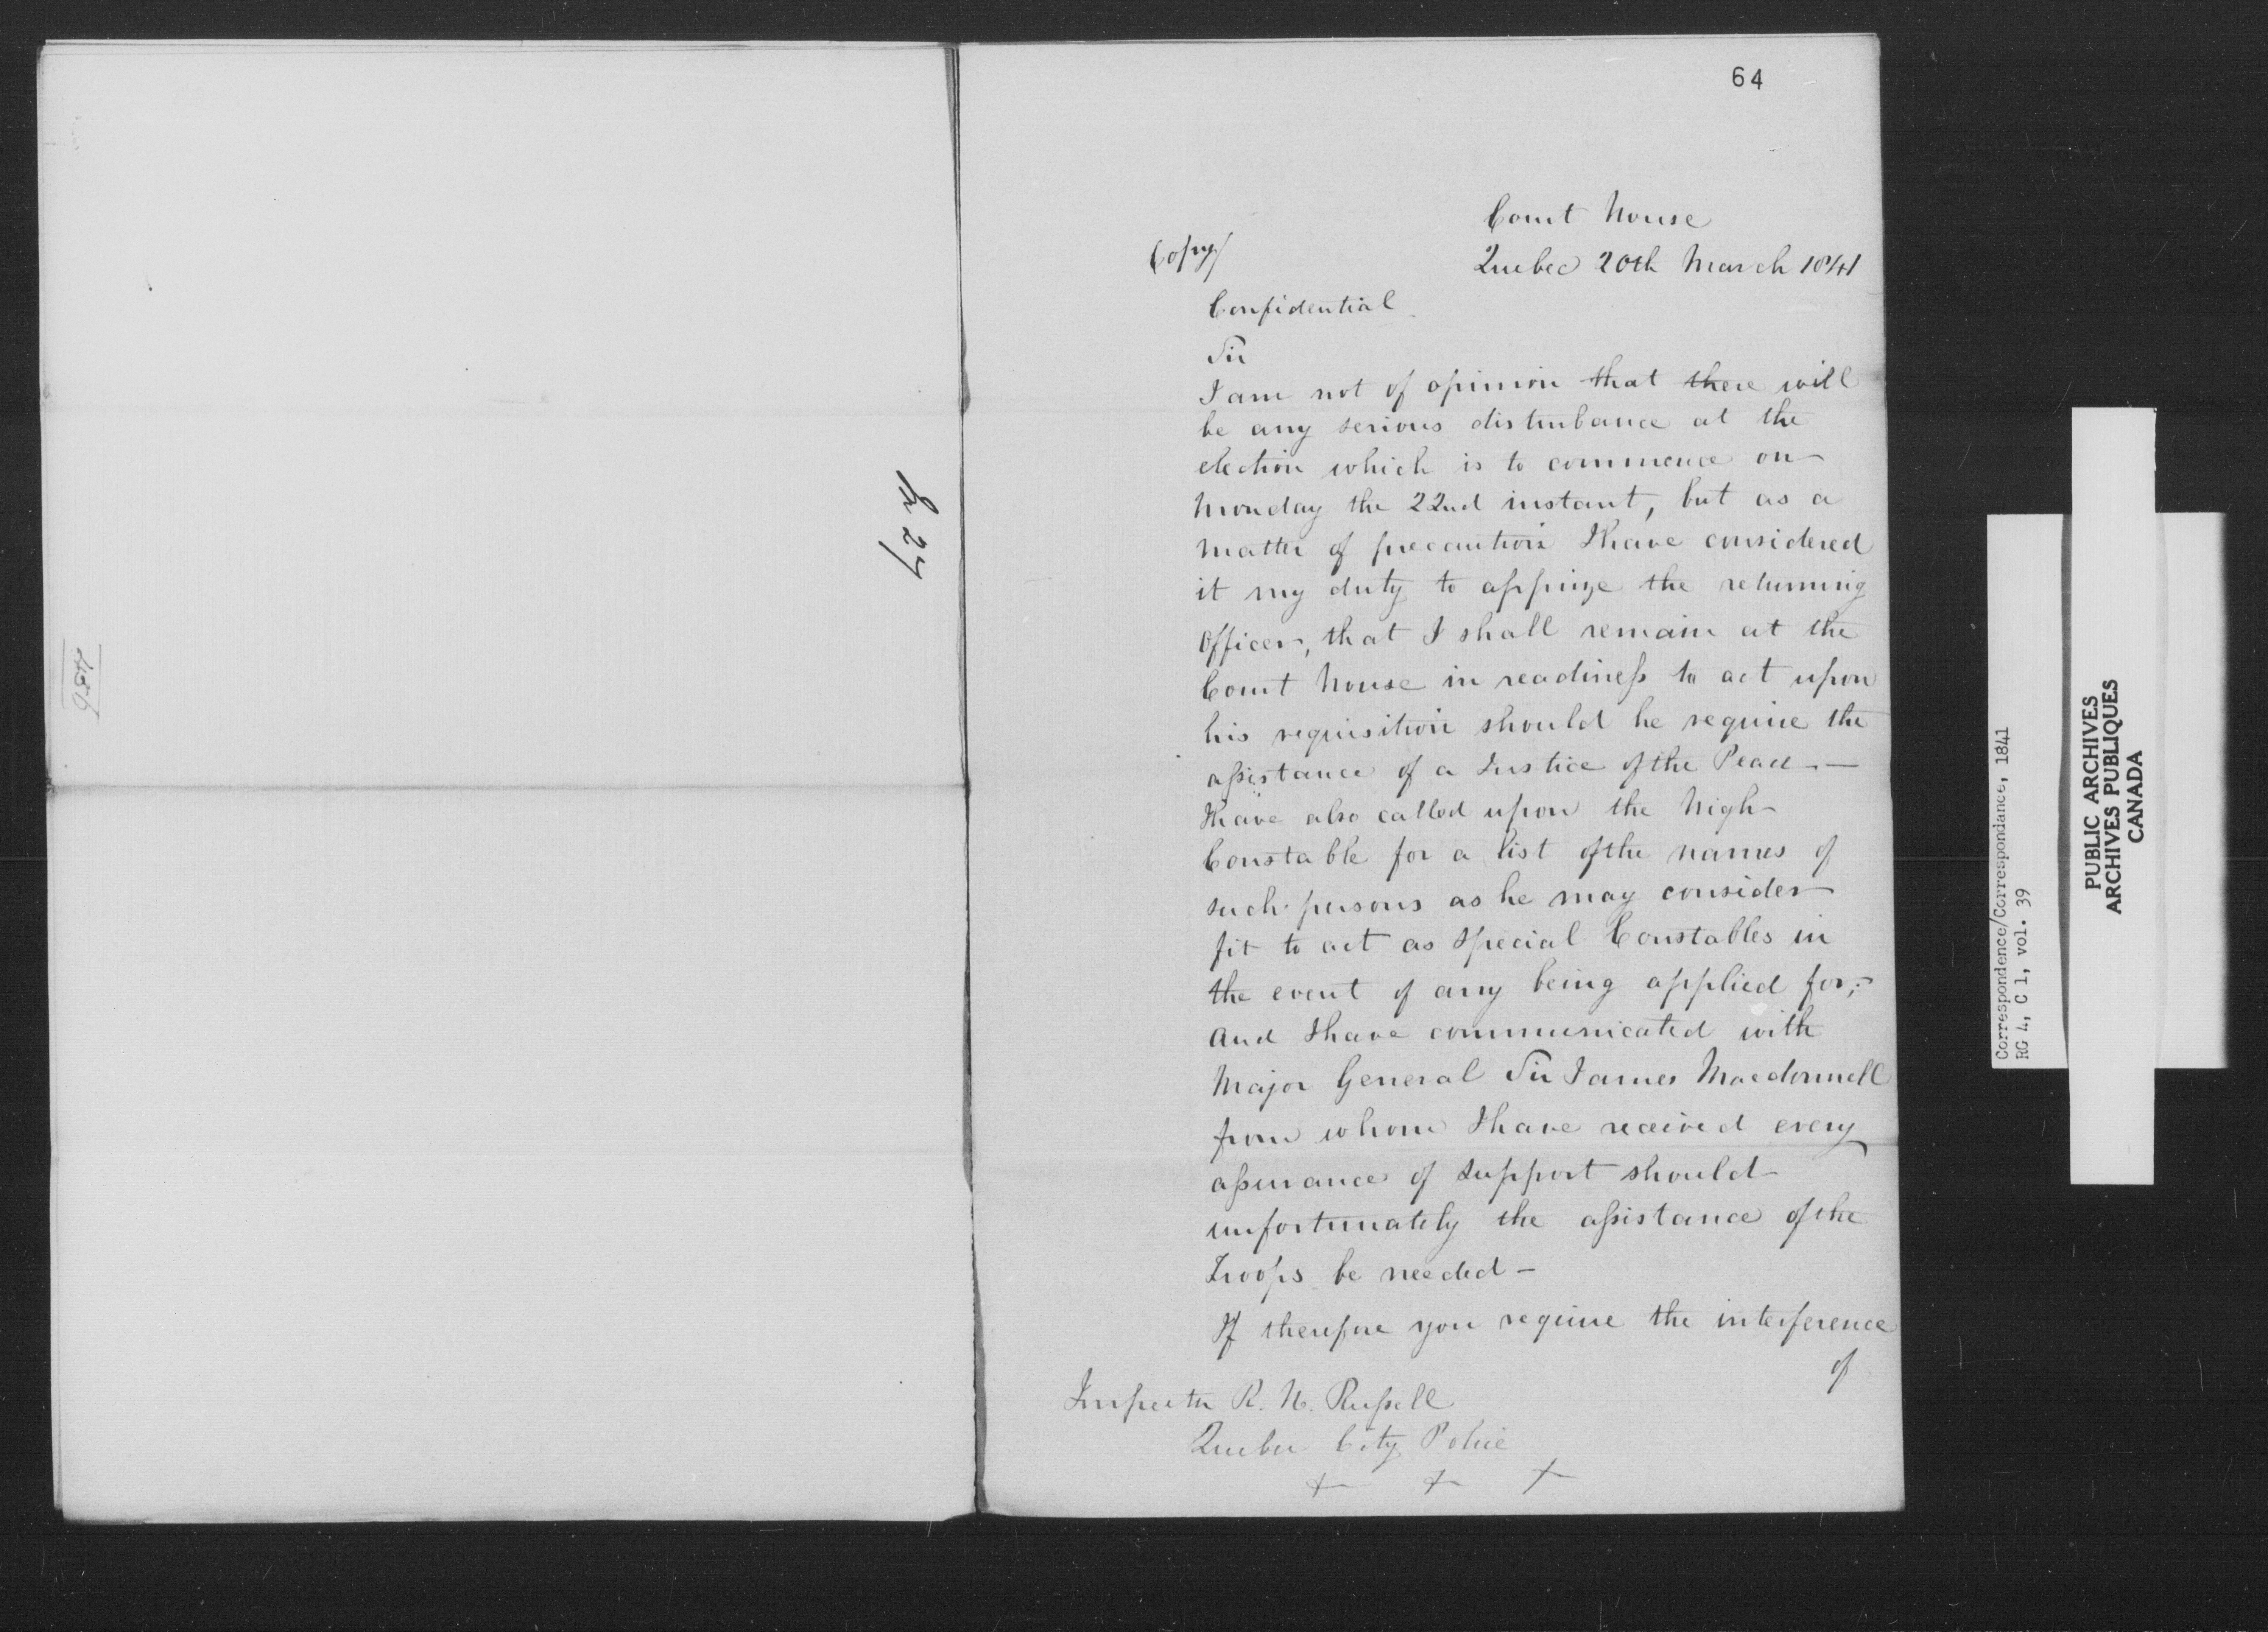 64
Court House
Copy
Quebec 20th March 1841
Confidential
Sir
I am not of opinion that there will
be any serious disturbance at the
election which is to commence on
Monday the 22nd instant, but as a
matter of precaution I have considered
it my duty to apprize the returning
Officer, that I shall remain at the
Court House in readiness to act upon
his requisition should he require the
assistance of a Justice of the Peace. —
I have also called upon the High
Constable for a list of the names of
such persons as he may consider
fit to act as Special Constables in
the event of any being applied for; -
and I have communicated with
Major General Sir James Macdonnell
from whom I have received every
assurance of support should
unfortunately the assistance of the
Troops be needed —
If therefore you require the interference
of
Inspector R. H. Russell
Quebec City Police
+ + +
Correspondence/Correspondance, 1841
RG 4, C 1, vol. 39
PUBLIC ARCHIVES
ARCHIVES PUBLIQUES
CANADA